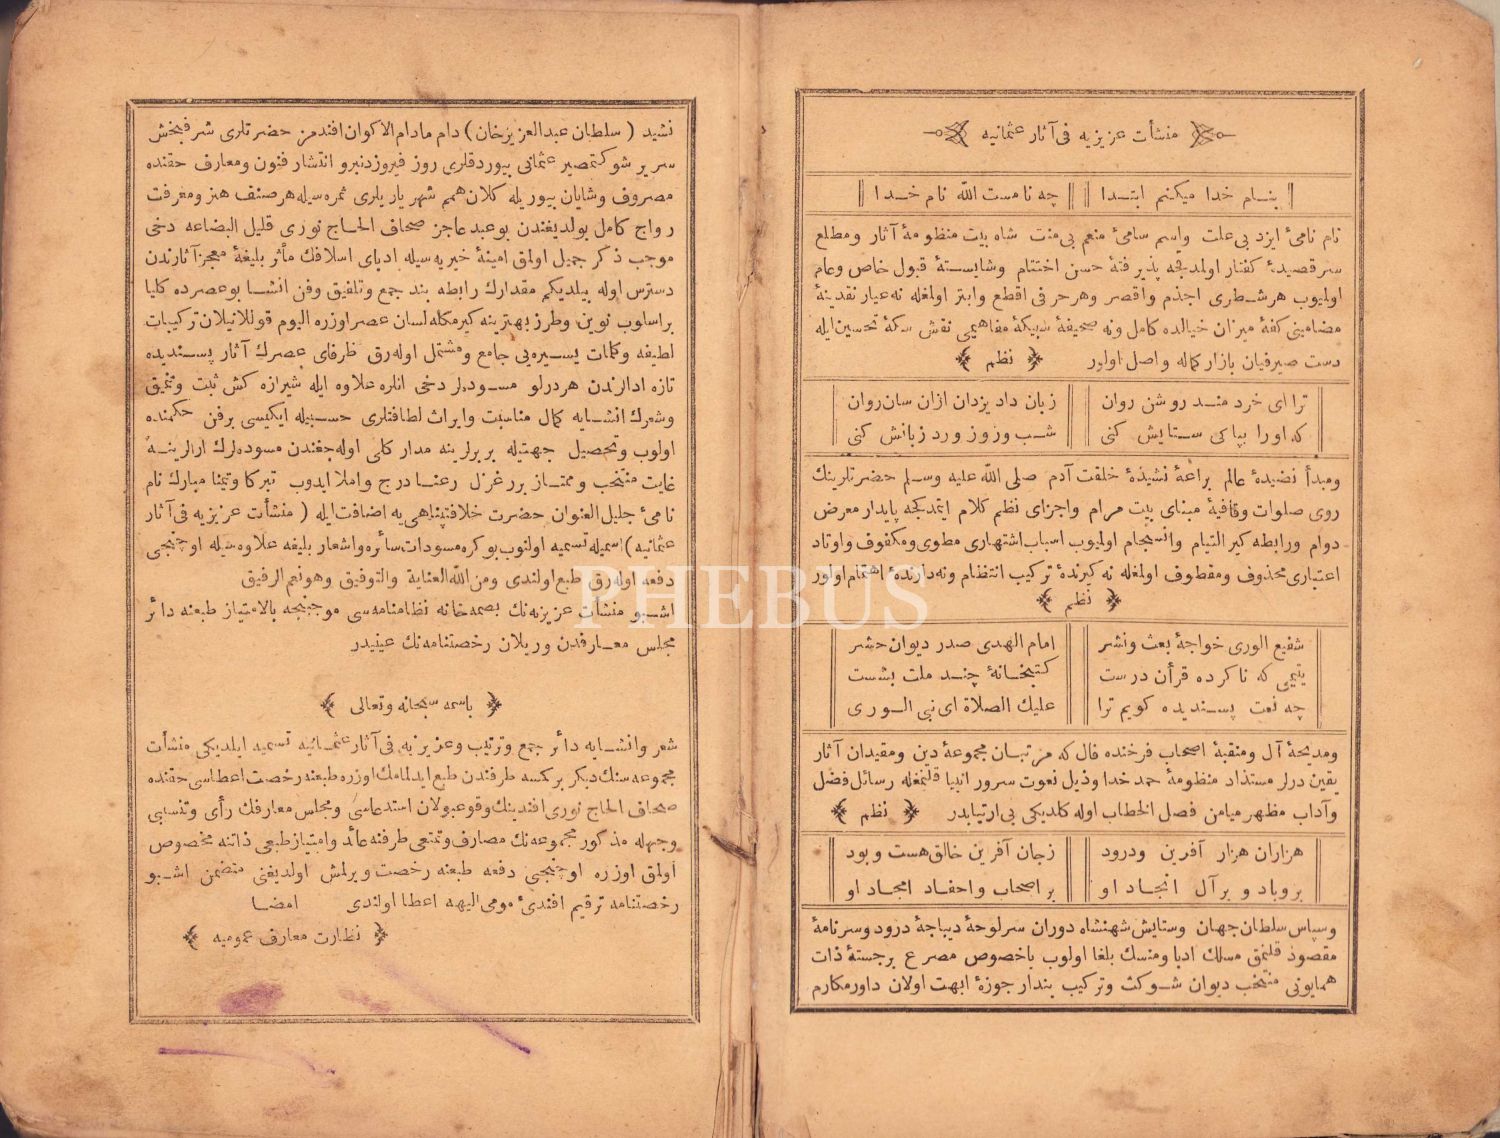 منشأت عزيزيه فى آثار عثمانيه
بنام خدا ميكنم ابتدا چه نامست الله نام خدا
نام نامئ ايزد بى علت واسم سامئ منعم بى منت شاه بيت منظومهٔ آثار ومطلع
سر قصيدهٔ كفتار اولمدقجه پذيرفتهٔ حسن اختتام وشايستهٔ قبول خاص وعام
اولميوب هر شطرى اجذم واقصر وهر حرفى اقطع وابتر اولمغله نه عيار نقدينهٔ
مضامينى كفهٔ ميزان خيالده كامل ونه صحيفهٔ سبيكهٔ مفاهيمى نقش سكهٔ تحسين ايله
دست صيرفيان بازار كماله واصل اولور نظم
ترا اى خردمند روشن روان زبان داد يزدان ازان سان روان
كه اورا بپاكى ستايش كنى شب وروز ورد زبانش كنى
ومبدأ نضيدهٔ عالم براعهٔ نشيدهٔ خلقت آدم صلى الله عليه وسلم حضرتلرينك
روى صلوات وقافيهٔ مبناى بيت مرام واجزاى نظم كلام ايتمدكجه پايدار معرض
دوام ورابطه كير التيام وانسجام اولميوب اسباب اشتهارى مطوى ومكفوف واوتاد
اعتبارى محذوف ومقطوف اولمغله نه كيرندهٔ تركيب انتظام ونه دارندهٔ اهتمام اولور
نظم
شفيع الورى خواجهٔ بعث ونشر امام الهدى صدر ديوان حشر
يتيمى كه ناكرده قرأن درست كتبخانهٔ چند ملت بشست
چه نعت پسنديده كويم ترا عليك الصلاة اى نبى الورى
ومديحهٔ آل ومنقبهٔ اصحاب فرخنده فال كه مرتبان مجموعهٔ دين ومقيدان آثار
يقين درلر مستذاد منظومهٔ حمد خدا وذيل نعوت سرور انبيا قلنمغله رسائل فضل
وآداب مظهر ميامن فصل الخطاب اوله كلديكى بى ارتيابدر نظم
هزاران هزار آفرين ودرود زجان آفرين خالق هست وبود
بروباد و بر آل انجاد او بر اصحاب واحفاد امجاد او
وسپاس سلطان جهان وستايش شهنشاه دوران سرلوحهٔ ديباجهٔ درود وسرنامهٔ
مقصود قلنمق مسلك ادبا ومنسك بلغا اولوب باخصوص مصرع برجستهٔ ذات
همايونى منتخب ديوان شوكت وتركيب بندار جوزهٔ ابهت اولان داور مكارم
نشيد ( سلطان عبدالعزيز خان ) دام مادام الاكوان افندمز حضرتلرى شرفبخش
سرير شوكتمصير عثمانى بيوردقلرى روز فيروزدنبرو انتشار فنون ومعارف حقنده
مصروف وشايان بيوريله كلان همم شهرياريلرى ثمره سيله هر صنف هنر ومعرفت
رواج كامل بولديغندن بو عبد عاجز صحاف الحاج نورى قليل البضاعه دخى
موجب ذكر جميل اولمق امنيهٔ خيريه سيله ادباى اسلافك مأثر بليغهٔ معجز آثارندن
دسترس اوله بيلديكم مقدارك رابطه بند جمع وتلفيق وفن انشا بو عصرده كليا
بر اسلوب نوين وطرز بهترينه كيرمكله لسان عصر اوزره اليوم قوللانيلان تركيبات
لطيفه وكلمات يسيره يى جامع ومشتمل اوله رق ظرفاى عصرك آثار پسنديده
تازه ادالرندن هر درلو مسوده لر دخى انلره علاوه ايله شيرازه كش ثبت وتنميق
وشعرك انشايه كمال مناسبت وايراث لطافتلرى حسبيله ايكيسى بر فن حكمنده
اولوب وتحصيل جهتيله بربرلرينه مدار كلى اوله جغندن مسوده لرك ارالرينه
غايت منتخب وممتاز برر غزل رعنا درج واملا ايدوب تبركا وتيمنا مبارك نام
نامئ جليل العنوان حضرت خلافتپناهى يه اضافت ايله ( منشأت عزيزيه فى آثار
عثمانيه ) اسميله تسميه اولنوب بوكره مسودات سائره واشعار بليغه علاوه سيله اوچنجى
دفعه اوله رق طبع اولندى ومن الله العناية والتوفيق وهو نعم الرفيق
اشبو منشأت عزيزيه نك بصمه خانه نظامنامه سى موجبنجه بالامتياز طبعنه دائر
مجلس معارفدن ويريلان رخصتنامه نك عينيدر
باسمه سبحانه وتعالى
شعر وانشايه دائر جمع وترتيب وعزيزيه فى آثار عثمانيه تسميه ايلديكى منشأت
مجموعه سنك ديكر بر كسه طرفندن طبع ايدلمامك اوزره طبعنه رخصت اعطاسى حقنده
صحاف الحاج نورى افندينك وقوعبولان استدعاسى ومجلس معارفك رأى وتنسيبى
وجهله مذكور مجموعه نك مصارف وتمتعى طرفنه عائد وامتياز طبعى ذاتنه مخصوص
اولمق اوزره اوچنجى دفعه طبعنه رخصت ويرلمش اولديغنى متضمن اشبو
رخصتنامه ترقيم افندئ مومى اليهه اعطا اولندى امضا
نظارت معارف عموميه
PHEBUS